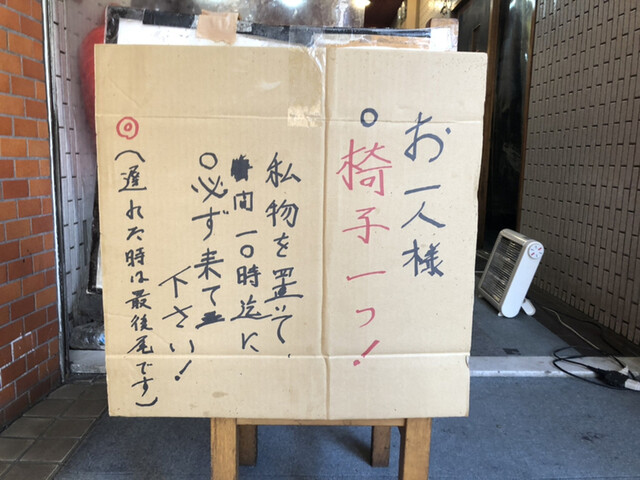 お一人様
○椅子一つ!
私物を置いて、
間一〇時迄に
○必ず来て
下さい!
◎(遅れた時は最後尾です)